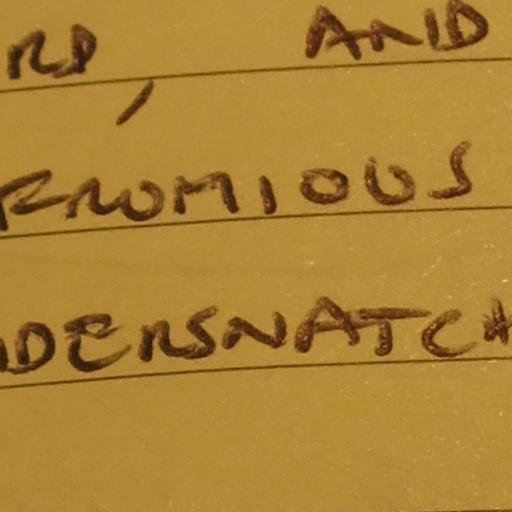 RD, AND
FRUMIOUS
NDERSNATCH